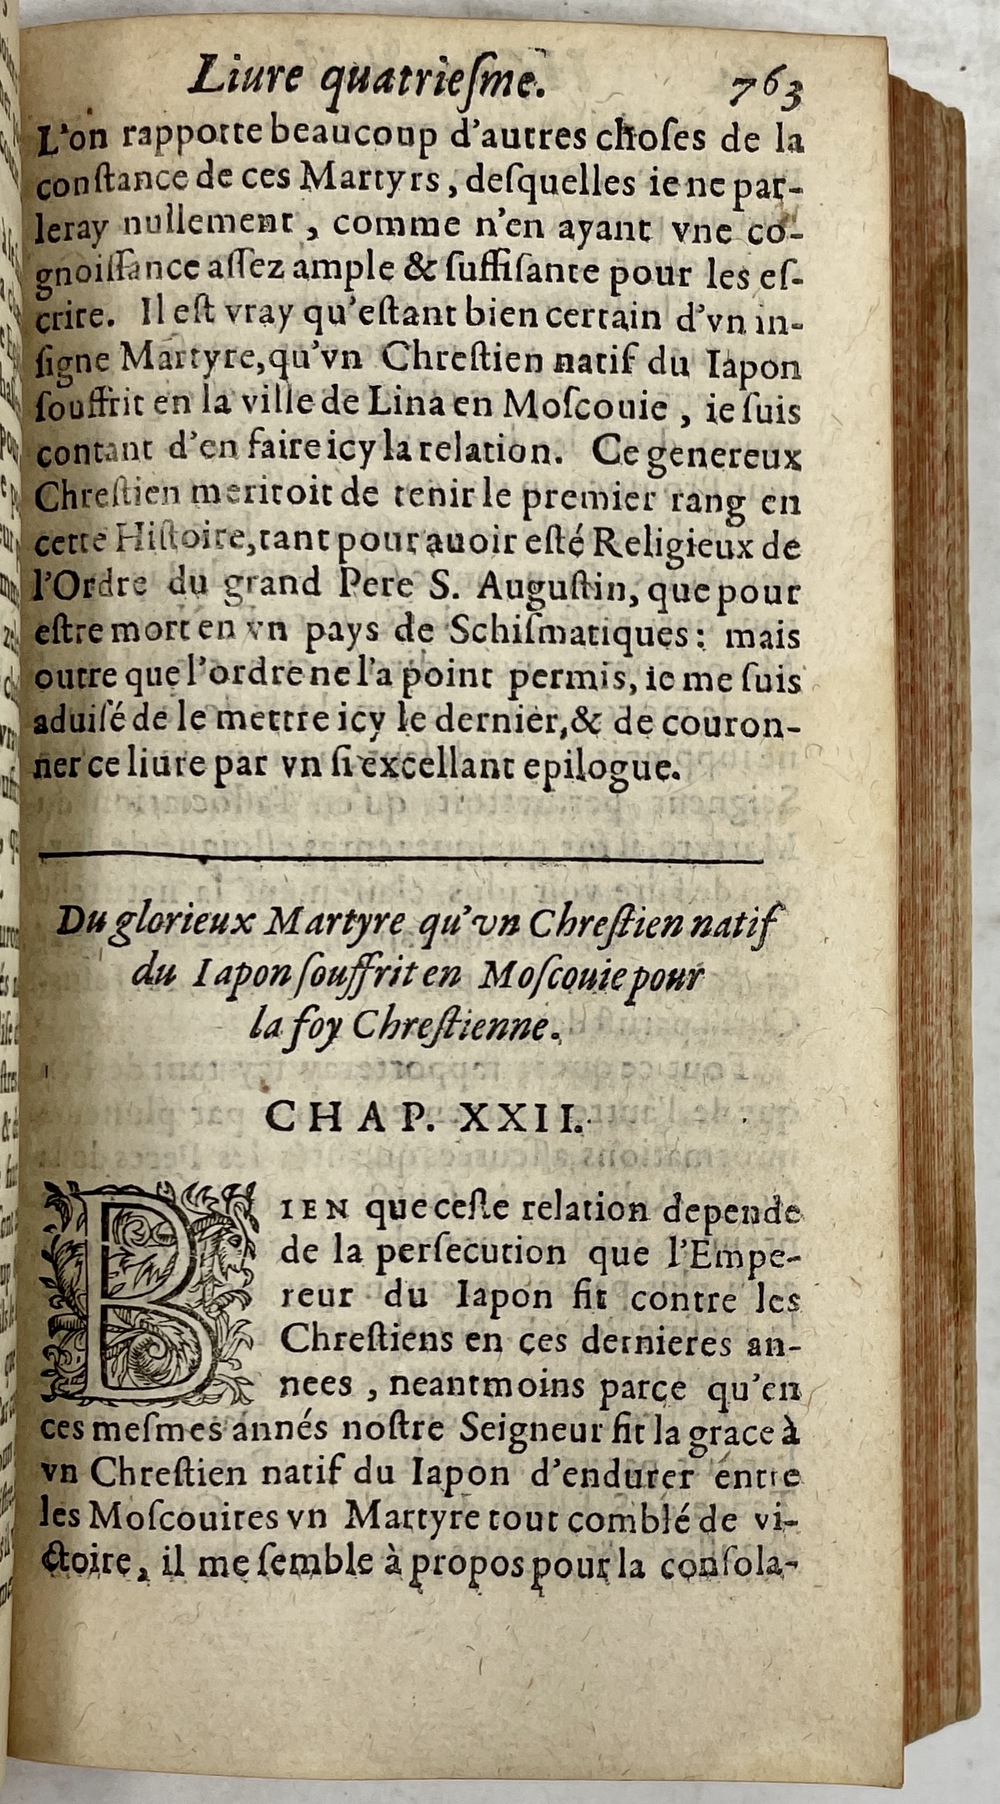 Liure quatrieſme. 763
L'on rapporte beaucoup d'autres choſes de la
conſtance de ces Martyrs, deſquelles ie ne par-
leray nullement, comme n'en ayant vne co-
gnoiſſance aſſez ample & ſuffiſante pour les eſ-
crire. Il eſt vray qu'eſtant bien certain d'vn in-
ſigne Martyre, qu'vn Chreſtien natif du Iapon
ſouffrit en la ville de Lina en Moſcouie, ie ſuis
contant d'en faire icy la relation. Ce genereux
Chreſtien meritoit de tenir le premier rang en
cette Hiſtoire, tant pour auoir eſté Religieux de
l'Ordre du grand Pere S. Auguſtin, que pour
eſtre mort en vn pays de Schiſmatiques: mais
outre que l'ordre ne l'a point permis, ie me ſuis
aduiſé de le mettre icy le dernier, & de couron-
ner ce liure par vn ſi excellant epilogue.
Du glorieux Martyre qu'vn Chreſtien natif
du Iapon ſouffrit en Moſcouie pour
la foy Chreſtienne.
CHAP. XXII.
BIEN que ceſte relation depende
de la perſecution que l'Empe-
reur du Iapon fit contre les
Chreſtiens en ces dernieres an-
nees, neantmoins parce qu'en
ces meſmes annés noſtre Seigneur fit la grace à
vn Chreſtien natif du Iapon d'endurer entre
les Moſcouites vn Martyre tout comblé de vi-
ctoire, il me ſemble à propos pour la conſola-